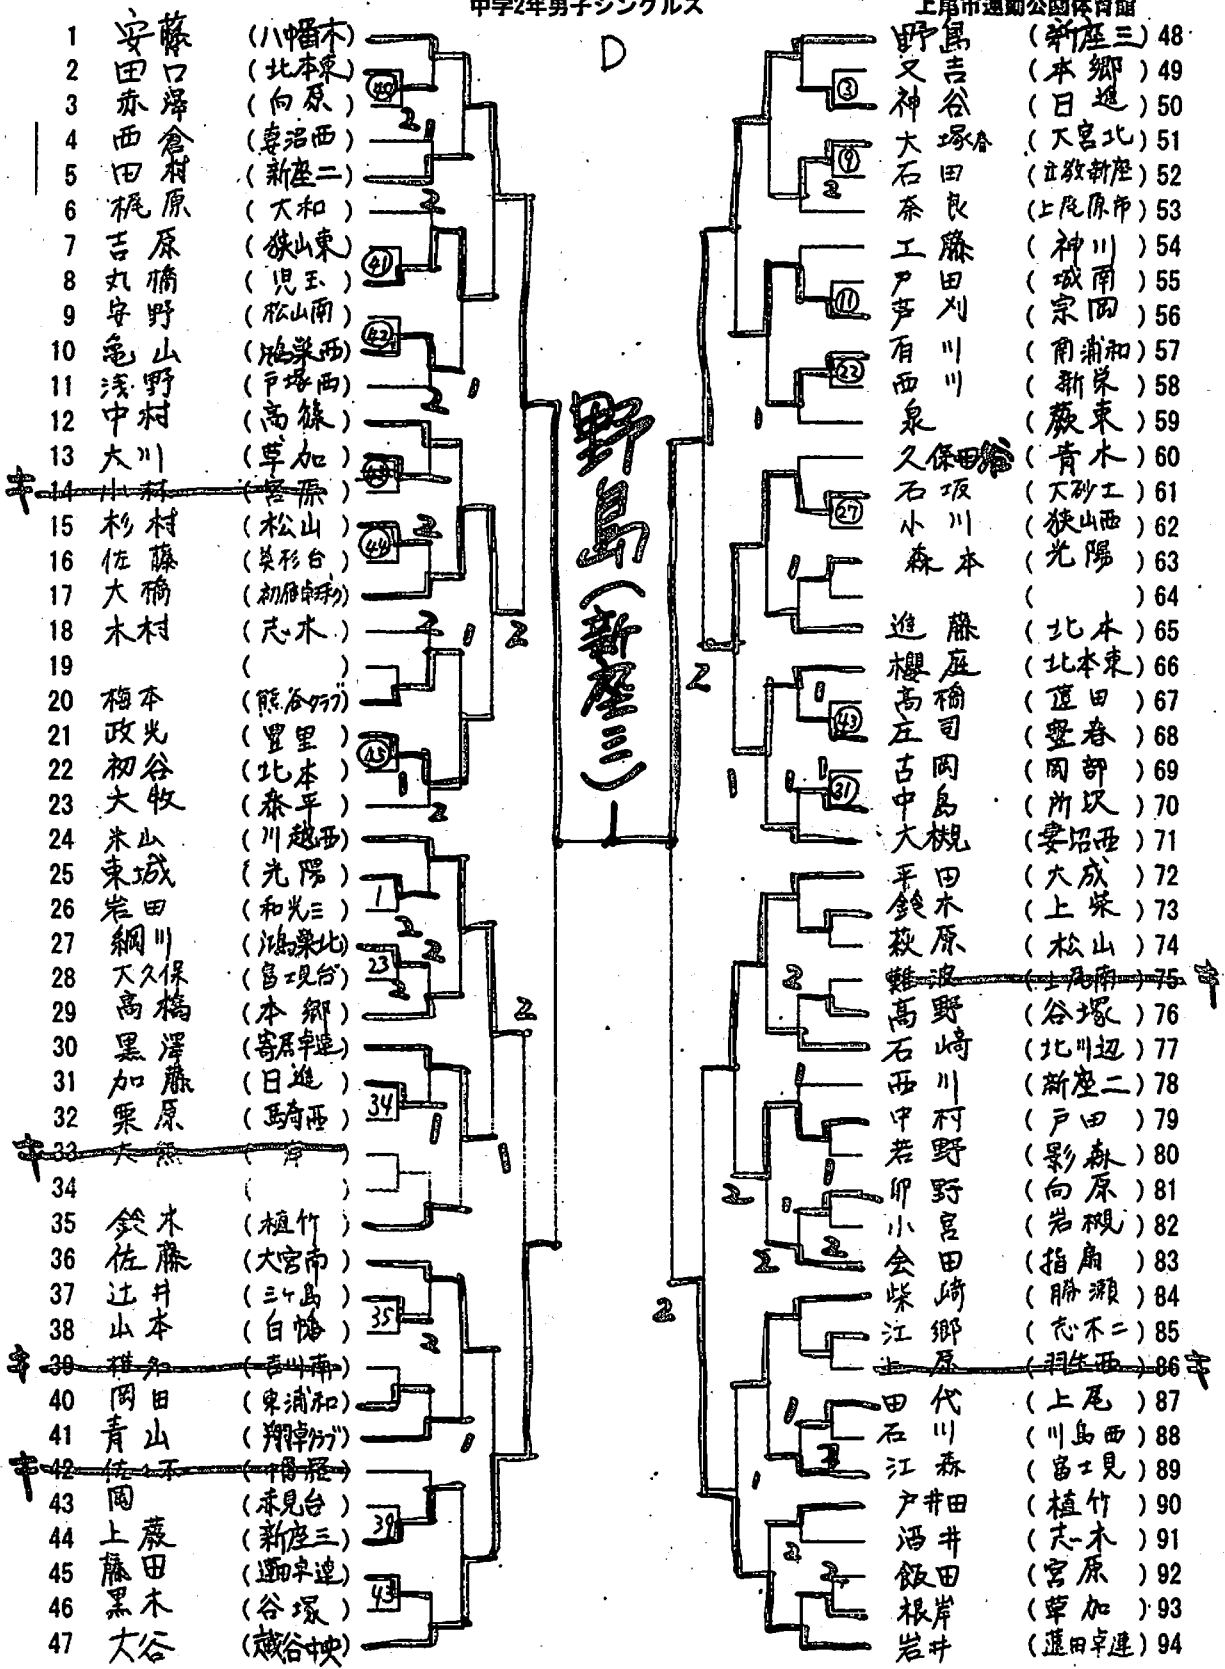 中学2年男子シングルス
上尾市運動公園体育館
D
1 安藤 (八幡木)
2 田口 (北本東)
3 赤澤 (向原)
4 西倉 (妻沼西)
5 田村 (新座二)
6 梶原 (大和)
7 吉原 (狭山東)
8 丸橋 (児玉)
9 安野 (松山南)
10 亀山 (鴻巣西)
11 浅野 (戸塚西)
12 中村 (高篠)
13 大川 (草加)
14 小林 (宮原)
15 杉村 (松山)
16 佐藤
17 大橋
18 木村 (志木)
19 ( )
20 梅本 (熊谷クラブ)
21 政光 (豊里)
22 初谷 (北本)
23 大牧 (泰平)
24 米山 (川越西)
25 東城 (光陽)
26 岩田 (和光三)
27 綱川 (鴻巣北)
28 大久保 (富士見台)
29 高橋 (本郷)
30 黒澤 (寄居卓連)
31 加藤 (日進)
32 栗原 (騎西)
33 大熊
34 ( )
35 鈴木 (植竹)
36 佐藤 (大宮南)
37 辻井 (三ヶ島)
38 山本 (白幡)
39 椎名 (吉川南)
40 岡田 (東浦和)
41 青山 (翔卓クラブ)
42
43 岡 (赤見台)
44 上蔀 (新座三)
45 藤田 (蓮田卓連)
46 黒木 (谷塚)
47 大谷 (越谷中央)
野島(新座三)
野島 (新座三) 48
又吉 (本郷) 49
神谷 (日進) 50
大塚春 (大宮北) 51
石田 (立教新座) 52
奈良 (上尾原市) 53
工藤 (神川) 54
戸田 (城南) 55
芦刈 (宗岡) 56
有川 (南浦和) 57
西川 (新栄) 58
泉 (蕨東) 59
久保田 (青木) 60
石坂 (大砂土) 61
小川 (狭山西) 62
森本 (光陽) 63
( ) 64
進藤 (北本) 65
櫻庭 (北本東) 66
高橋 (蓮田) 67
庄司 (豊春) 68
古岡 (岡部) 69
中島 (所沢) 70
大槻 (妻沼西) 71
平田 (大成) 72
鈴木 (上柴) 73
萩原 (松山) 74
難波 (上尾南) 75
高野 (谷塚) 76
石崎 (北川辺) 77
西川 (新座二) 78
中村 (戸田) 79
若野 (影森) 80
卯野 (向原) 81
小宮 (岩槻) 82
会田 (指扇) 83
柴崎 (勝瀬) 84
江郷 (志木二) 85
上原 (羽生西) 86
田代 (上尾) 87
石川 (川島西) 88
江森 (富士見) 89
戸井田 (植竹) 90
酒井 (志木) 91
飯田 (宮原) 92
根岸 (草加) 93
岩井 (蓮田卓連) 94